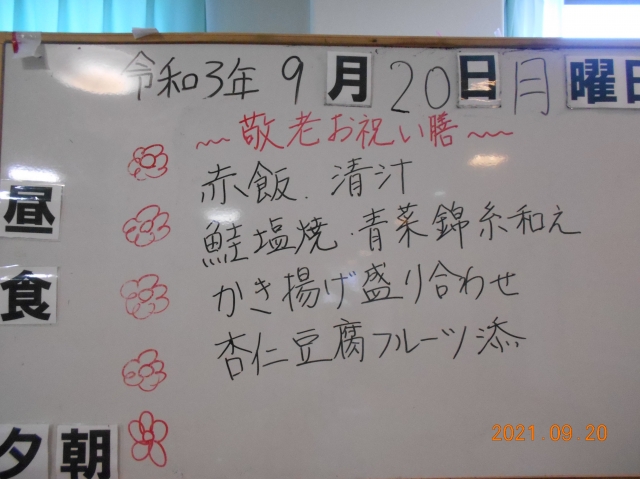 令和3年 9月20日月曜日
～敬老お祝い膳～
赤飯.清汁
鮭塩焼.青菜錦糸和え
かき揚げ盛り合わせ
杏仁豆腐フルーツ添
昼
食
夕朝
2021.09.20